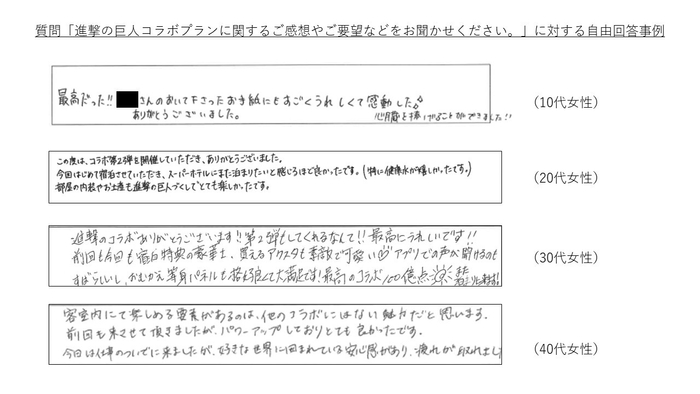 質問「進撃の巨人コラボプランに関するご感想やご要望などをお聞かせください。」に対する自由回答事例
最高だった!! さんのおいて下さったお手紙にもすごくうれしくて感動した
ありがとうございました。 心臓を捧げることができました!!
(10代女性)
この度は、コラボ第2弾を開催していただき、ありがとうございました。
今回はじめて宿泊させていただき、スーパーホテルにまた泊まりたいと感じるほど良かったです。(特に健康水が嬉しかったです。)
部屋の内装やお土産も進撃の巨人づくしでとても楽しかったです。
(20代女性)
進撃のコラボありがとうございます!!第2弾もしてくれるなんて!!最高にうれしいです!!
前回も今回も宿泊特典の豪華さ、買えるアクスタも素敵で可愛い アプリでの声が聞けるのも
すばらしいし、おむかえ等身パネルも格好良くて大満足です!最高のコラボ100億点
(30代女性)
客室内にて楽しめる要素があるのは、他のコラボにはない魅力だと思います。
前回も来させて頂きましたが、パワーアップしておりとても良かったです。
今回は仕事のついでに来ましたが、好きな世界に囲まれている安心感があり、疲れが取れまし
(40代女性)